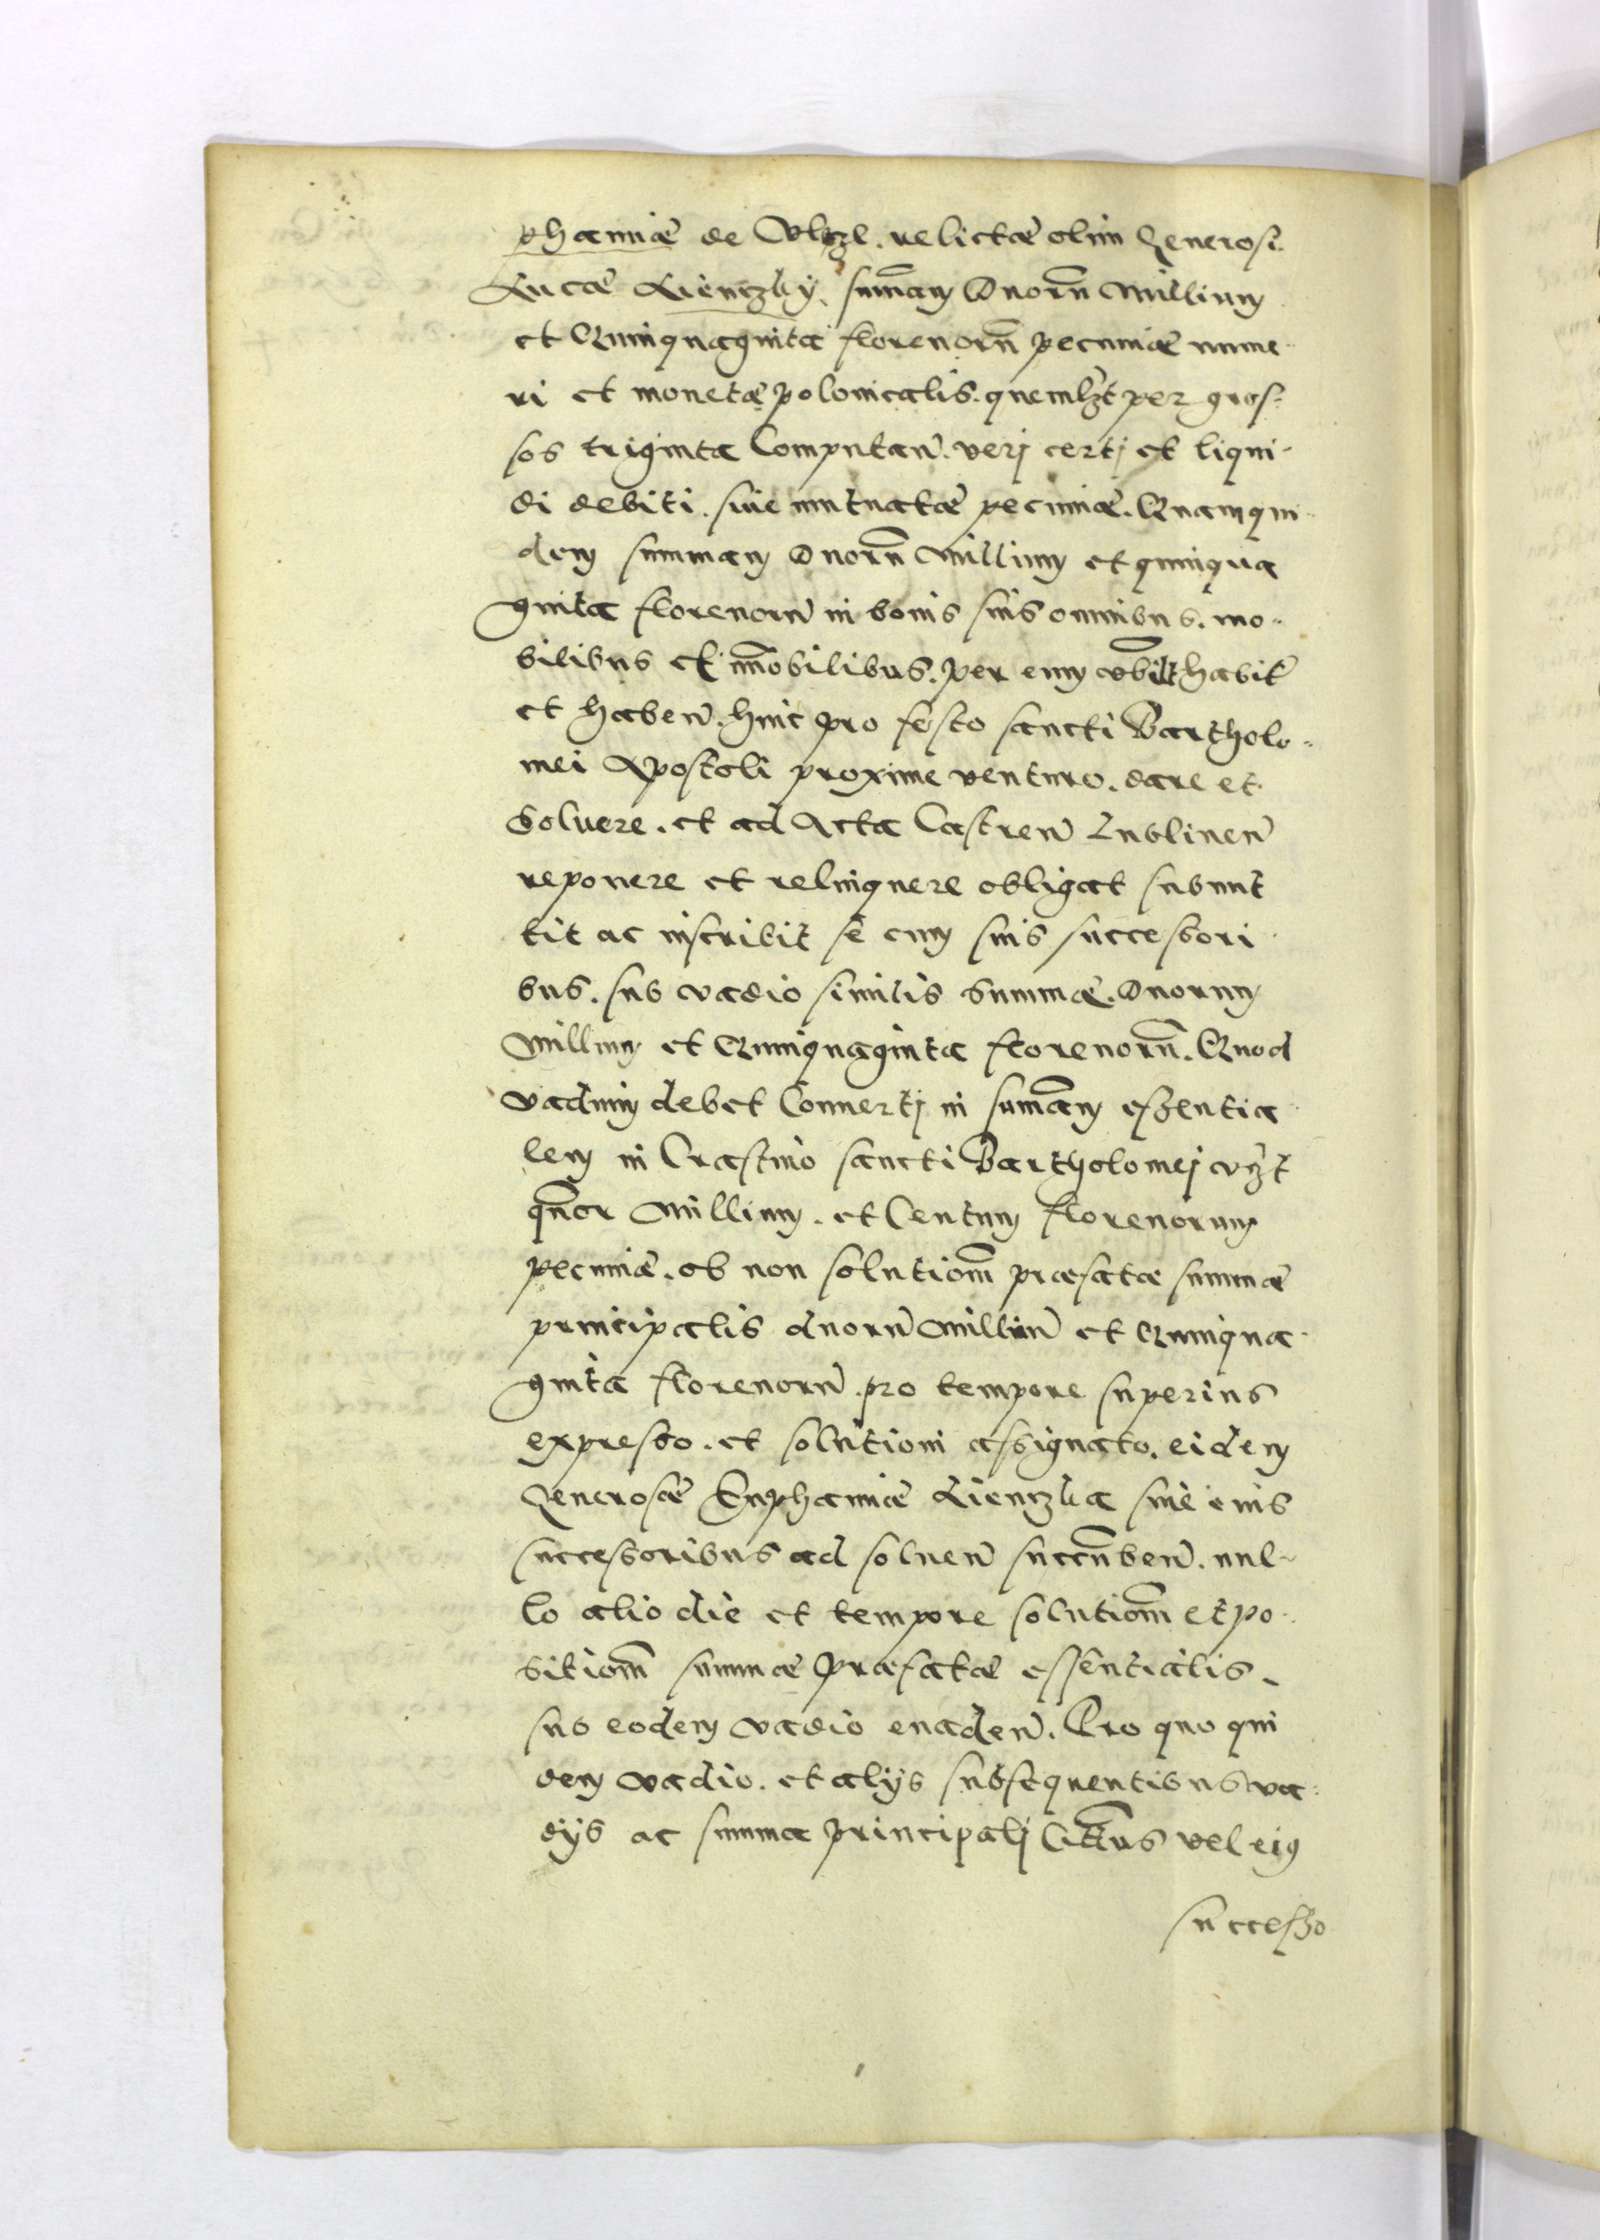 phamiæ de relictæ olim Generosi
Lucæ Lienczky, sum̄am Duorū Millium
et Quinquaginta florenorū pecuniæ nume-
ri et monetæ polonicalis. quemlꝫt per gros-
sos triginta Computan̄. verj certj et liqui-
di debiti. siue mutuatæ pecuniæ. Quamqui-
dem summam Duorū Millium et quinqua
ginta florenorū in bonis suis omnibus. mo-
bilibus et im̄obilibus. per eum vbilt habit̄
et haben̄. hinc pro festo sancti Bartholo-
mei Apostoli proxime venturo. dare et
Soluere. et ad Acta Castren̄ Lublinen̄
reponere et relinquere obligat submit
tit ac inscribit se cum suis successori
bus. sub vadio similis Summæ. Duorum
Millium et Quinquaginta florenorū. Quod
vadium debet Conuertj in sum̄am essentia
lem in Crastino sancti Bartholomej vꝫt
qūor Millium. et Centum florenorum
pecuniæ. ob non solutiōm præfatæ summæ
principalis duorū Milliū et Quinqua-
ginta florenorū. pro tempore superius
expresso. et solutioni assignato. eidem
Generosæ Euphamiæ Lienczka siue eius
successoribus ad soluen̄ succūben̄. nul-
lo alio die et tempore solutiōm et po-
sitiōm summæ præfatæ essentialis.
sub eodem vadio euaden̄. Pro quo qui
dem vadio. et alijs subsequentibus va-
dijs ac summa principalj Citt̄us vel eiꝰ
successo